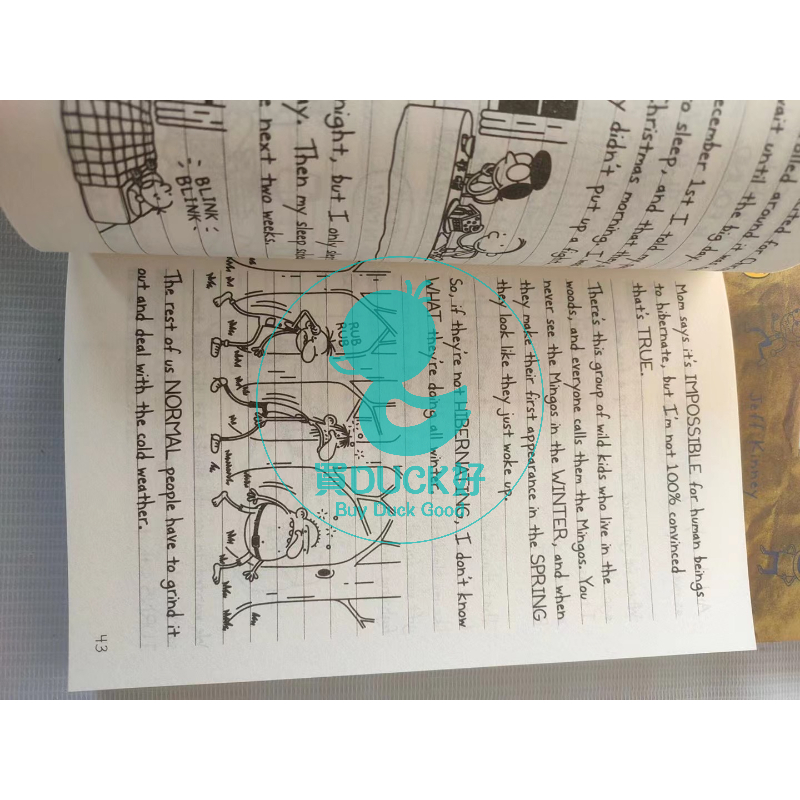 for
around it
wait until the big day
1st I told
to sleep, and that
Christmas morning. I
didn't put up a
night, but I only
Then my sleep
next two weeks.
BLINK
BLINK
Mom says it's IMPOSSIBLE for human beings
to hibernate, but I'm not 100% convinced
that's TRUE.
There's this group of wild kids who live in the
woods, and everyone calls them the Mingos. You
never see the Mingos in the WINTER, and when
they make their first appearance in the SPRING
they look like they just woke up.
RUB
RUB
So, if they're not HIBERNATING, I don't know
WHAT they're doing all winter.
The rest of us NORMAL people have to grind it
out and deal with the cold weather.
43
Jeff Kinney
買DUCK好
Buy Duck Good